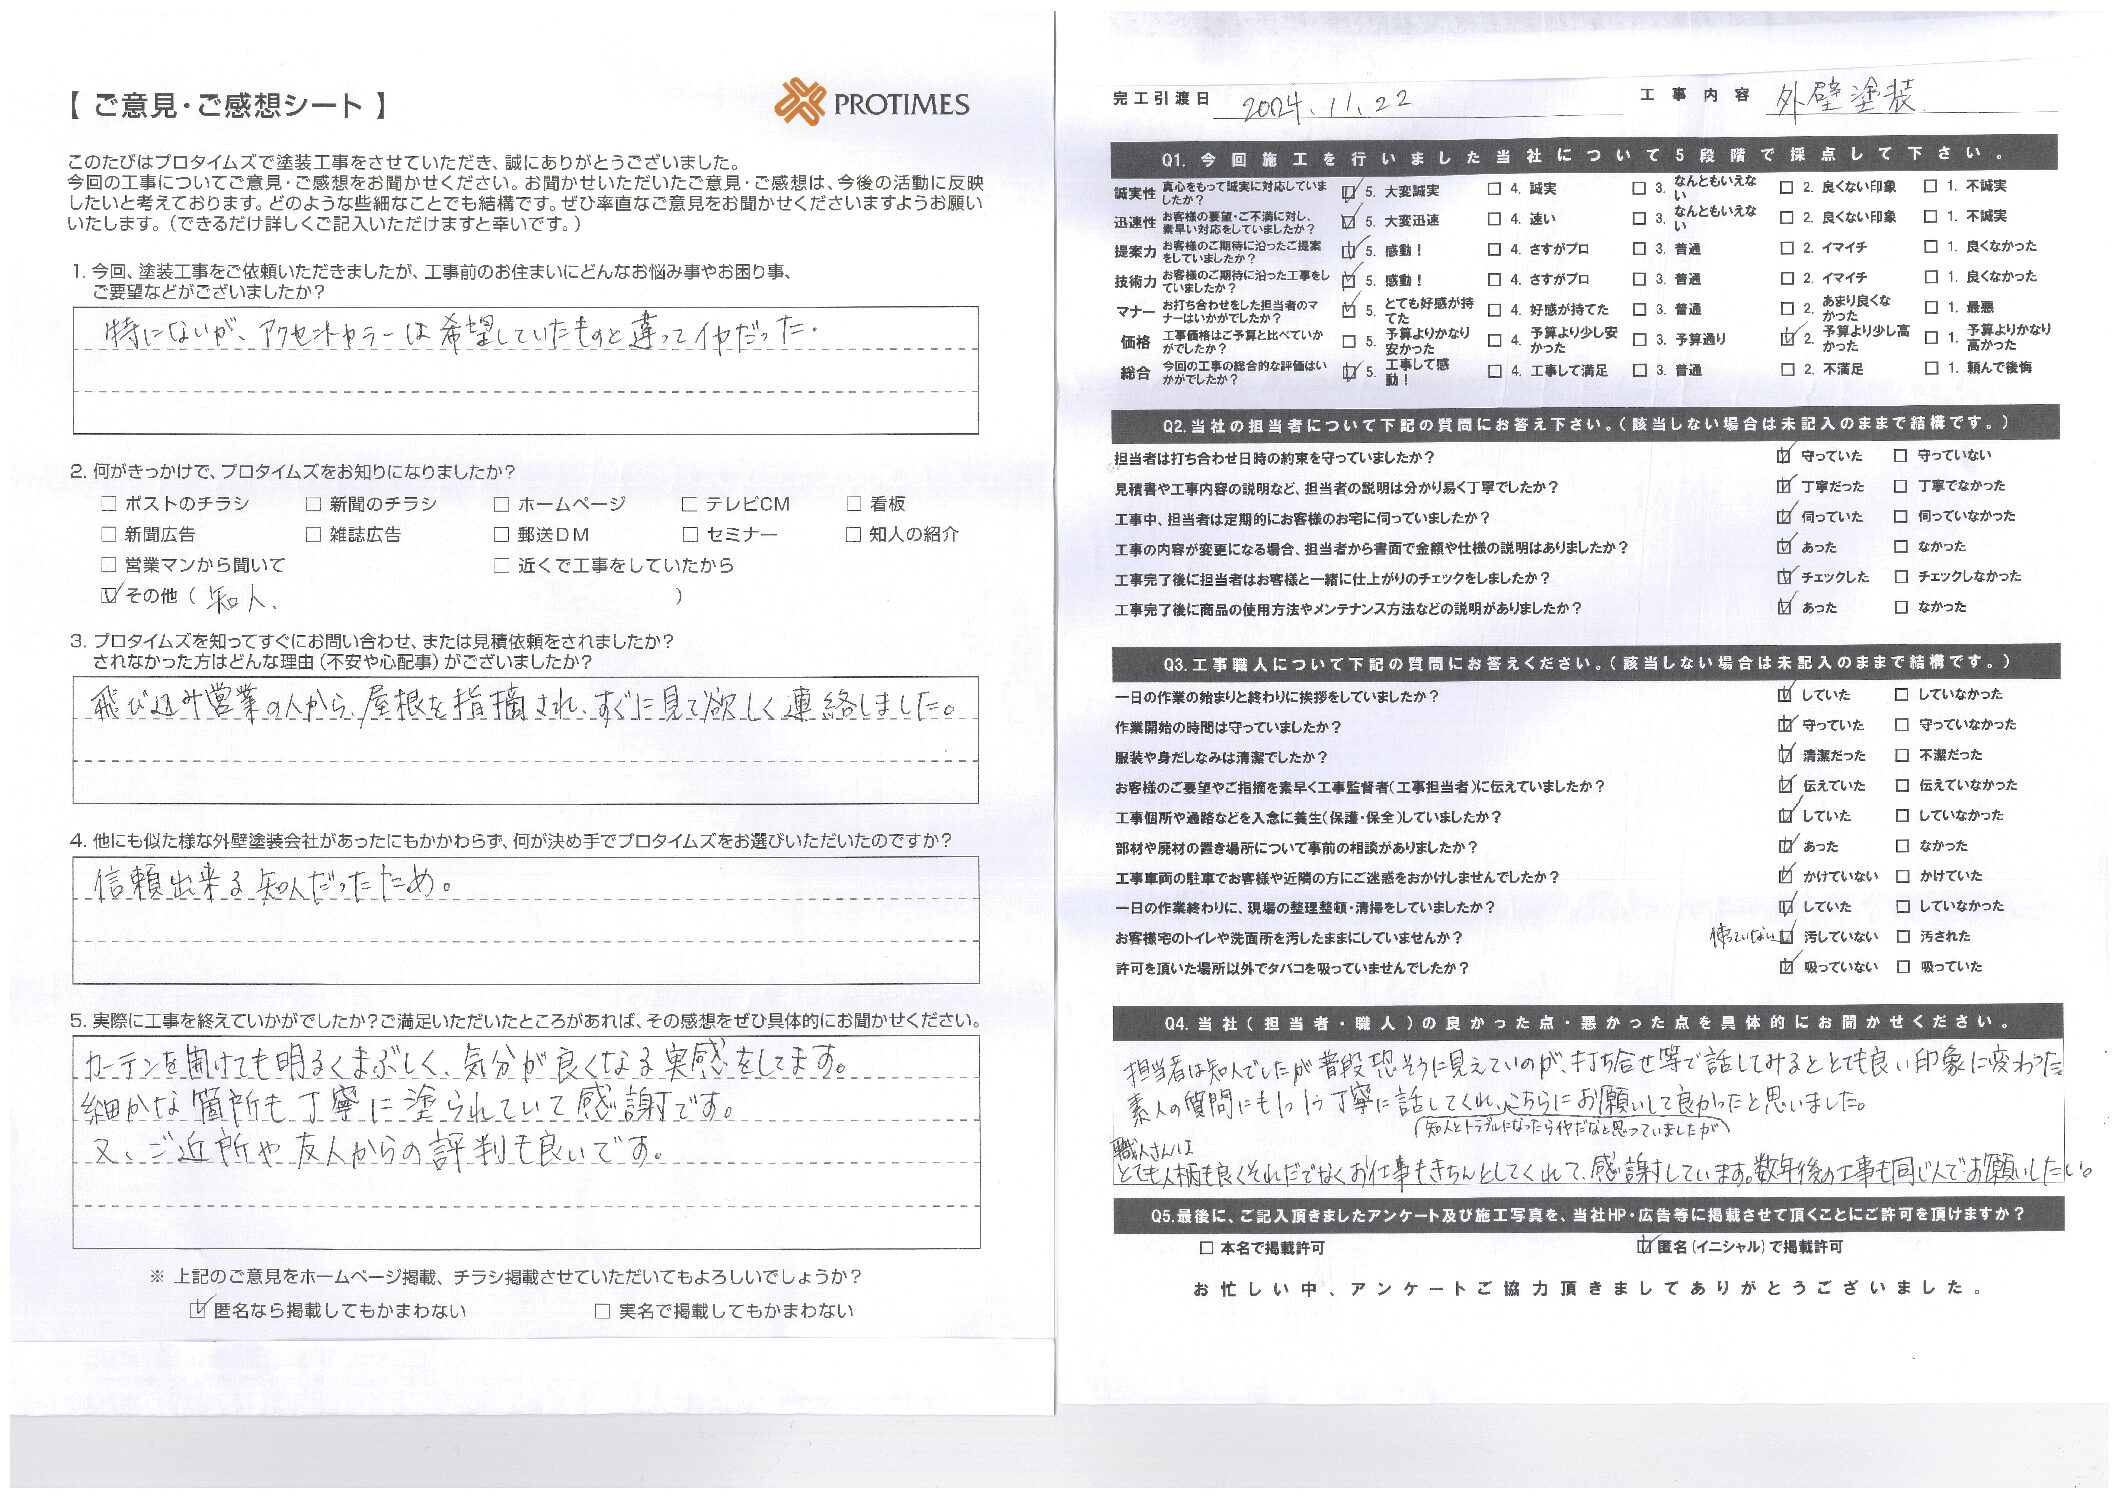 【 ご意見・ご感想シート 】
PROTIMES
このたびはプロタイムズで塗装工事をさせていただき、誠にありがとうございました。
今回の工事についてご意見・ご感想をお聞かせください。お聞かせいただいたご意見・ご感想は、今後の活動に反映
したいと考えております。どのような些細なことでも結構です。ぜひ率直なご意見をお聞かせくださいますようお願い
いたします。（できるだけ詳しくご記入いただけますと幸いです。）
1. 今回、塗装工事をご依頼いただきましたが、工事前のお住まいにどんなお悩み事やお困り事、
ご要望などがございましたか？
特にないが、アクセントカラーは希望していたものと違ってイヤだった.
2. 何がきっかけで、プロタイムズをお知りになりましたか？
□ ポストのチラシ □ 新聞のチラシ □ ホームページ □ テレビCM □ 看板
□ 新聞広告 □ 雑誌広告 □ 郵送DM □ セミナー □ 知人の紹介
□ 営業マンから聞いて □ 近くで工事をしていたから
☑ その他（ 知人. ）
3. プロタイムズを知ってすぐにお問い合わせ、または見積依頼をされましたか？
されなかった方はどんな理由（不安や心配事）がございましたか？
飛び込み営業の人から、屋根を指摘され、すぐに見て欲しく連絡しました。
4. 他にも似た様な外壁塗装会社があったにもかかわらず、何が決め手でプロタイムズをお選びいただいたのですか？
信頼出来る知人だったため。
5. 実際に工事を終えていかがでしたか？ご満足いただいたところがあれば、その感想をぜひ具体的にお聞かせください。
カーテンを開けても明るくまぶしく、気分が良くなる実感をしてます。
細かな箇所も丁寧に塗られていて感謝です。
又、ご近所や友人からの評判も良いです。
※ 上記のご意見をホームページ掲載、チラシ掲載させていただいてもよろしいでしょうか？
☑ 匿名なら掲載してもかまわない □ 実名で掲載してもかまわない
完工引渡日 2024.11.22 工事内容 外壁塗装
Q1. 今回施工を行いました当社について5段階で採点して下さい。
誠実性 真心をもって誠実に対応していましたか？ ☑ 5. 大変誠実 □ 4. 誠実 □ 3. なんともいえない □ 2. 良くない印象 □ 1. 不誠実
迅速性 お客様の要望・ご不満に対し、素早い対応をしていましたか？ ☑ 5. 大変迅速 □ 4. 速い □ 3. なんともいえない □ 2. 良くない印象 □ 1. 不誠実
提案力 お客様のご期待に沿ったご提案をしていましたか？ ☑ 5. 感動！ □ 4. さすがプロ □ 3. 普通 □ 2. イマイチ □ 1. 良くなかった
技術力 お客様のご期待に沿った工事をしていましたか？ ☑ 5. 感動！ □ 4. さすがプロ □ 3. 普通 □ 2. イマイチ □ 1. 良くなかった
マナー お打ち合わせをした担当者のマナーはいかがでしたか？ ☑ 5. とても好感が持てた □ 4. 好感が持てた □ 3. 普通 □ 2. あまり良くなかった □ 1. 最悪
価格 工事価格はご予算と比べていかがでしたか？ □ 5. 予算よりかなり安かった □ 4. 予算より少し安かった □ 3. 予算通り ☑ 2. 予算より少し高かった □ 1. 予算よりかなり高かった
総合 今回の工事の総合的な評価はいかがでしたか？ ☑ 5. 工事して感動！ □ 4. 工事して満足 □ 3. 普通 □ 2. 不満足 □ 1. 頼んで後悔
Q2. 当社の担当者について下記の質問にお答え下さい。（該当しない場合は未記入のままで結構です。）
担当者は打ち合わせ日時の約束を守っていましたか？ ☑ 守っていた □ 守っていない
見積書や工事内容の説明など、担当者の説明は分かり易く丁寧でしたか？ ☑ 丁寧だった □ 丁寧でなかった
工事中、担当者は定期的にお客様のお宅に伺っていましたか？ ☑ 伺っていた □ 伺っていなかった
工事の内容が変更になる場合、担当者から書面で金額や仕様の説明はありましたか？ ☑ あった □ なかった
工事完了後に担当者はお客様と一緒に仕上がりのチェックをしましたか？ ☑ チェックした □ チェックしなかった
工事完了後に商品の使用方法やメンテナンス方法などの説明がありましたか？ ☑ あった □ なかった
Q3. 工事職人について下記の質問にお答えください。（該当しない場合は未記入のままで結構です。）
一日の作業の始まりと終わりに挨拶をしていましたか？ ☑ していた □ していなかった
作業開始の時間は守っていましたか？ ☑ 守っていた □ 守っていなかった
服装や身だしなみは清潔でしたか？ ☑ 清潔だった □ 不潔だった
お客様のご要望やご指摘を素早く工事監督者（工事担当者）に伝えていましたか？ ☑ 伝えていた □ 伝えていなかった
工事個所や通路などを入念に養生（保護・保全）していましたか？ ☑ していた □ していなかった
部材や廃材の置き場所について事前の相談がありましたか？ ☑ あった □ なかった
工事車両の駐車でお客様や近隣の方にご迷惑をおかけしませんでしたか？ ☑ かけていない □ かけていた
一日の作業終わりに、現場の整理整頓・清掃をしていましたか？ ☑ していた □ していなかった
お客様宅のトイレや洗面所を汚したままにしていませんか？ 使っていない ☑ 汚していない □ 汚された
許可を頂いた場所以外でタバコを吸っていませんでしたか？ ☑ 吸っていない □ 吸っていた
Q4. 当社（担当者・職人）の良かった点・悪かった点を具体的にお聞かせください。
担当者は知人でしたが普段恐そうに見えていのが、打ち合せ等で話してみるととても良い印象に変わった
素人の質問にも1つ1つ丁寧に話してくれ、こちらにお願いして良かったと思いました。
（知人とトラブルになったらイヤだなと思っていましたが）
職人さんは
とても人柄も良くそれだでなくお仕事もきちんとしてくれて、感謝しています。数年後の工事も同じ人でお願いしたい。
Q5. 最後に、ご記入頂きましたアンケート及び施工写真を、当社HP・広告等に掲載させて頂くことにご許可を頂けますか？
□ 本名で掲載許可 ☑ 匿名（イニシャル）で掲載許可
お忙しい中、アンケートご協力頂きましてありがとうございました。